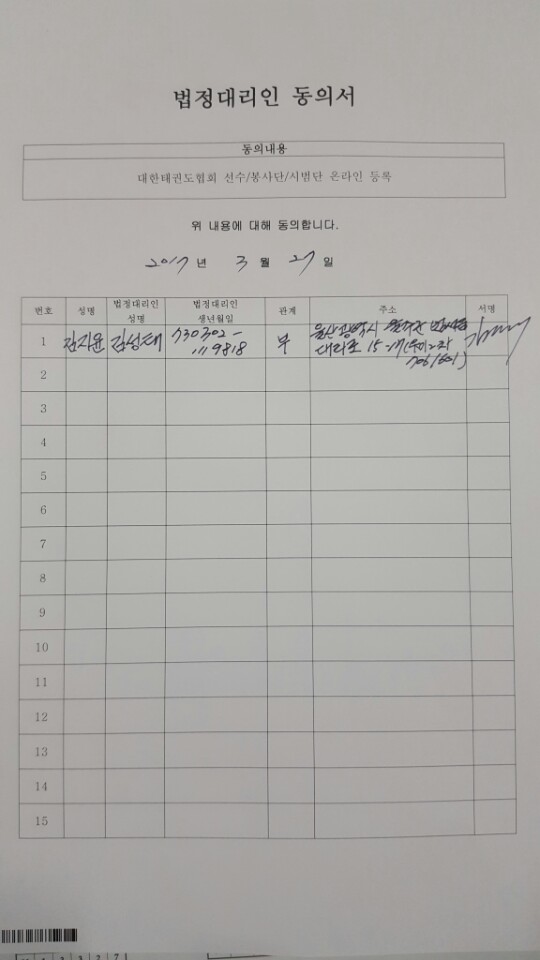 법정대리인 동의서
동의내용
대한태권도협회 선수/봉사단/시범단 온라인 등록
위 내용에 대해 동의합니다.
2017 년 3 월 27 일
번호 성명 법정대리인 성명 법정대리인 생년월일 관계 주소 서명
1 김지윤 김성태 730302- 부 울산광역시 울주군
1119818 대리로 15-17
2
3
4
5
6
7
8
9
10
11
12
13
14
15